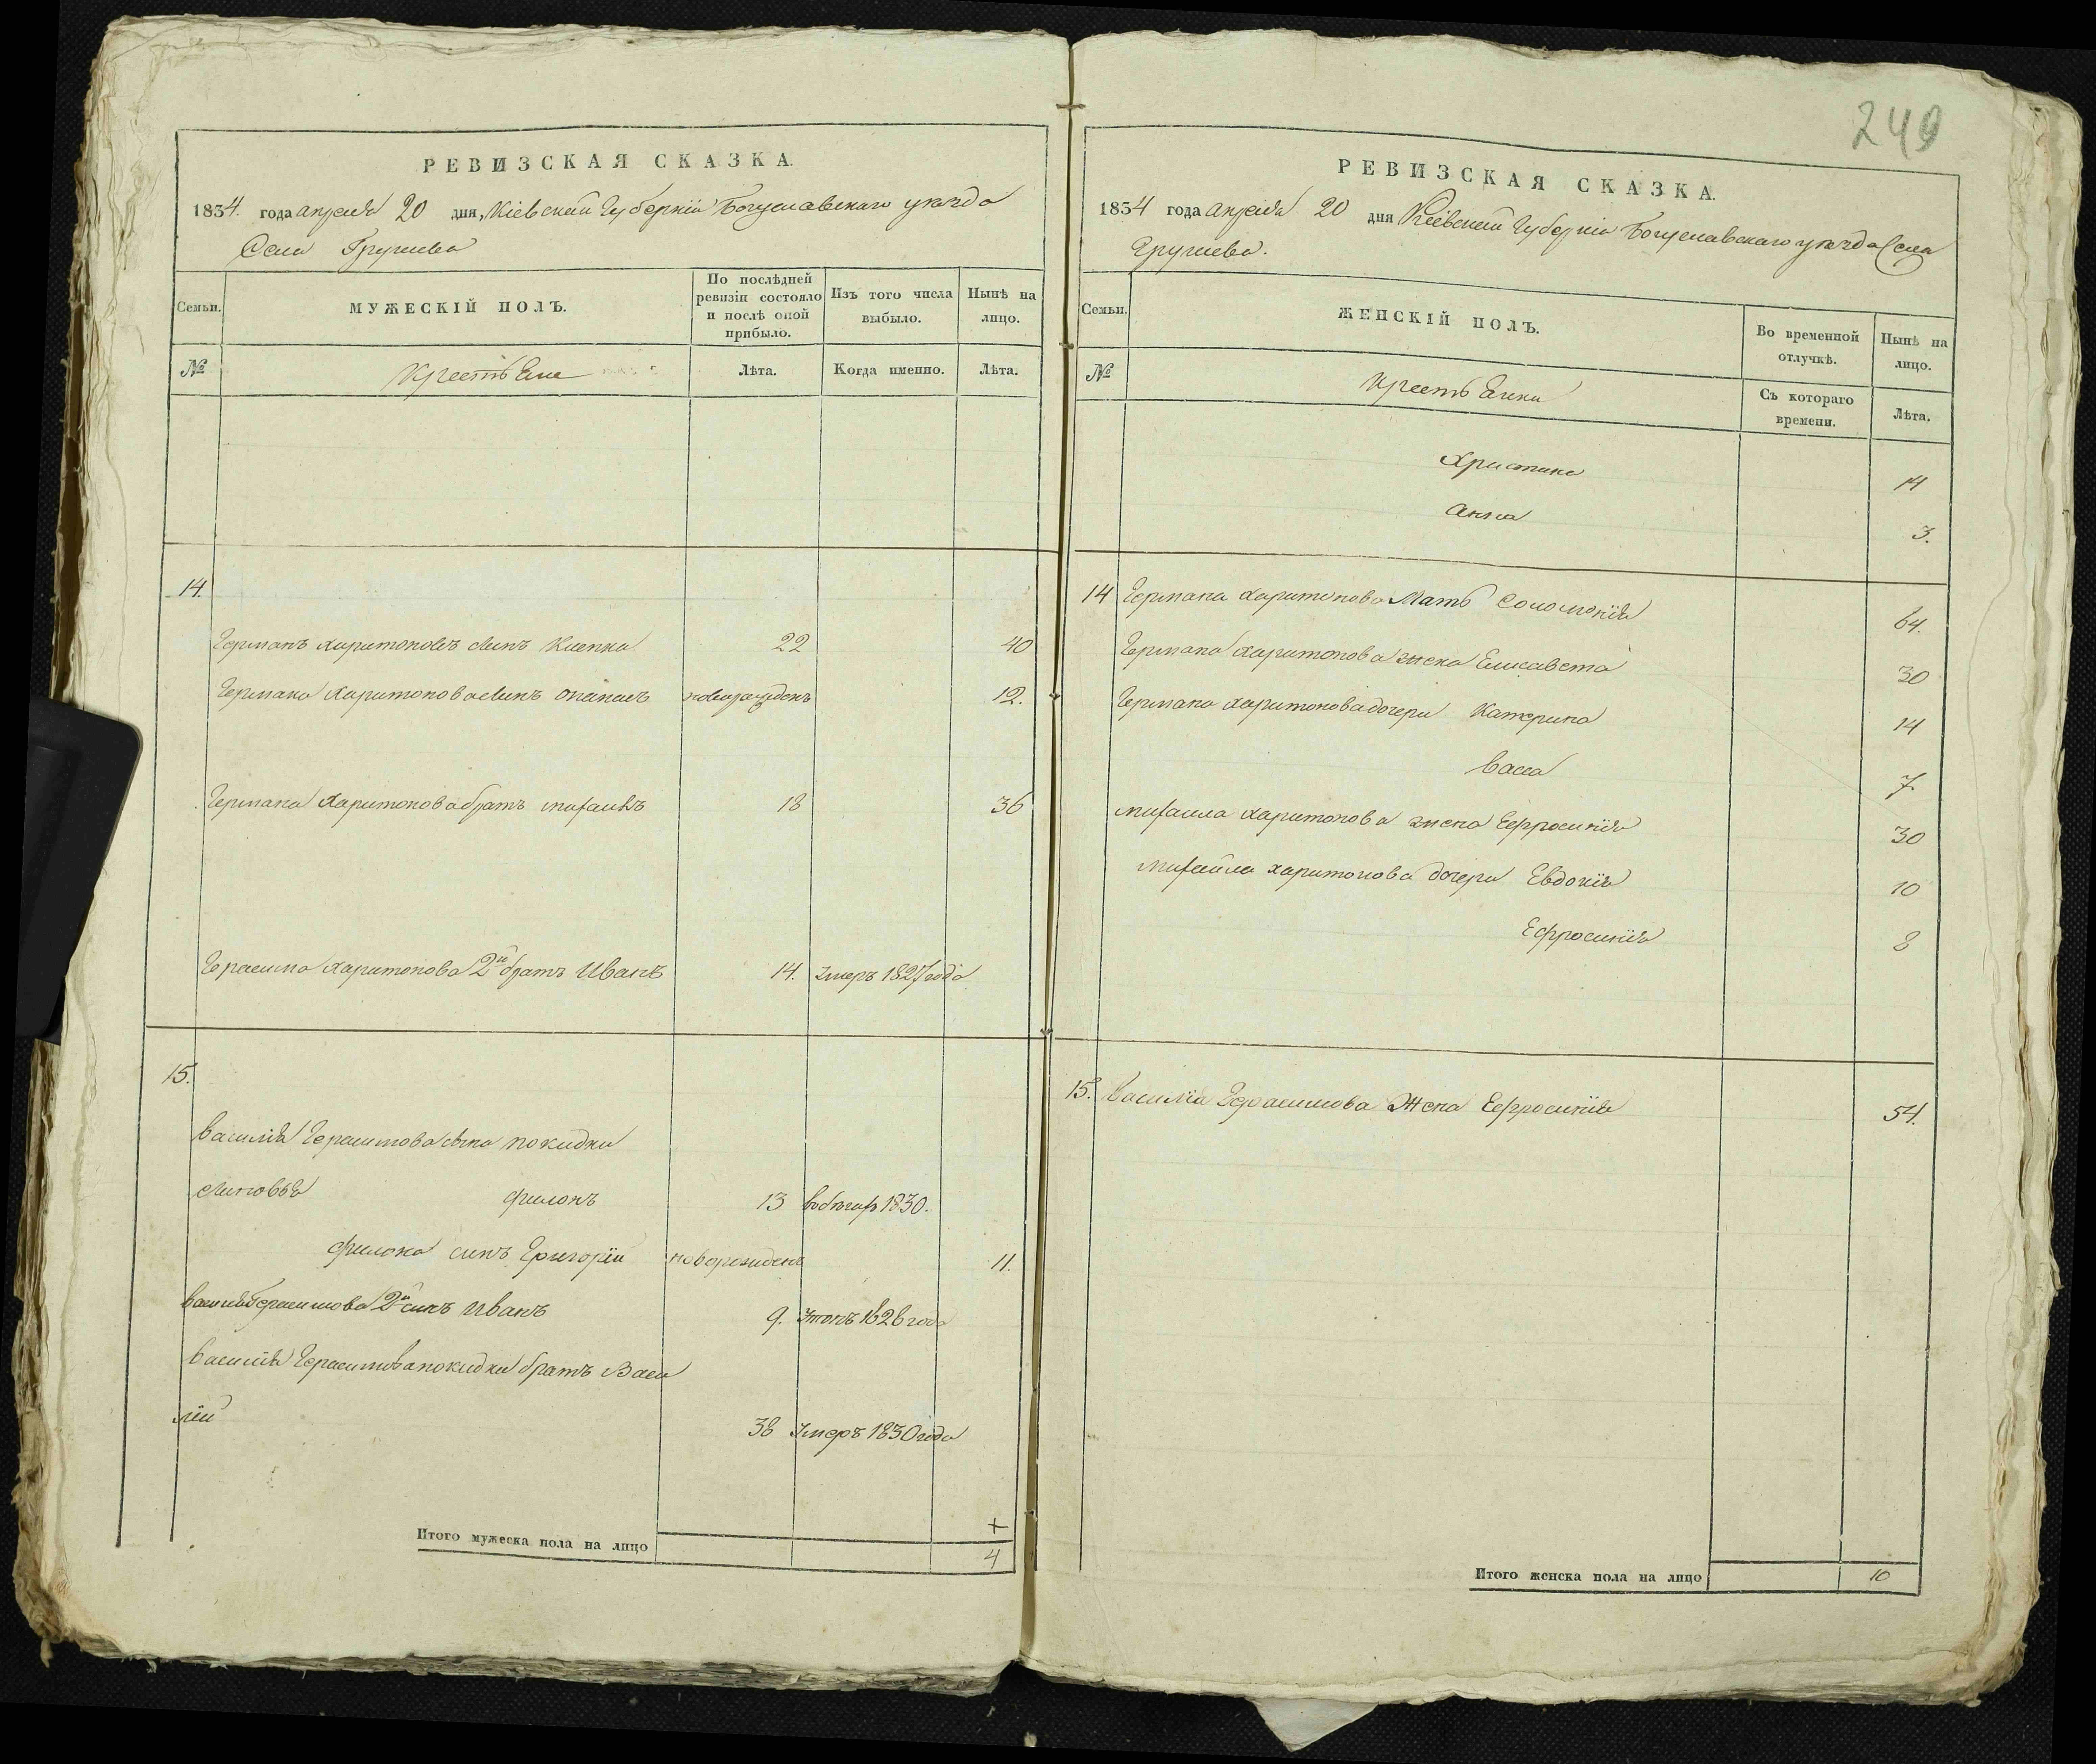 249
РЕВИЗСКАЯ СКАЗКА.
1834. года апреля 20 дня, Кіевской Губерніи Богуславскаго уѣзда
Села Грушева
Семьи.
МУЖЕСКІЙ ПОЛЪ.
По послѣдней ревизіи состояло и послѣ оной прибыло.
Изъ того числа выбыло.
Нынѣ на лицо.
№
Крестьяне
Лѣта.
Когда именно.
Лѣта.
14.
Германъ Харитоновъ синъ 22 40
Германа Харитонова синъ новорожденъ 12.
Германа Харитонова братъ михаилъ 18 36
Герасима Харитонова 2й братъ Иванъ 14. Умеръ 1827 года
15.
Василія Герасимова сина покидки
Синовья Филонъ 13 1830.
Филона синъ Григорій новорожденъ 11.
Василія Герасимова 2й синъ Иванъ 9. 1828 года
Василія Герасимова покидки братъ Васи
лій 38 Умеръ 1830 года
+
Итого мужеска пола на лицо 4
РЕВИЗСКАЯ СКАЗКА.
1834 года апреля 20 дня Кіевской Губерніи Богуславскаго уѣзда Села
Грушева.
Семьи.
ЖЕНСКІЙ ПОЛЪ.
Во временной отлучкѣ.
Нынѣ на лицо.
№
Крестьянки
Съ котораго времени.
Лѣта.
Христина 14
Анна 3.
14 Германа Харитонова Мать Соломонія 64.
Германа Харитонова жена Елисавета 30
Германа Харитонова дочери Катерина 14
Васса 7.
михаила Харитонова жена Ефросинія 30
михайла харитонова дочери Евдокія 10
Ефросинія 8
15. Василія Герасимова Жена Ефросинія 54.
Итого женска пола на лицо 10